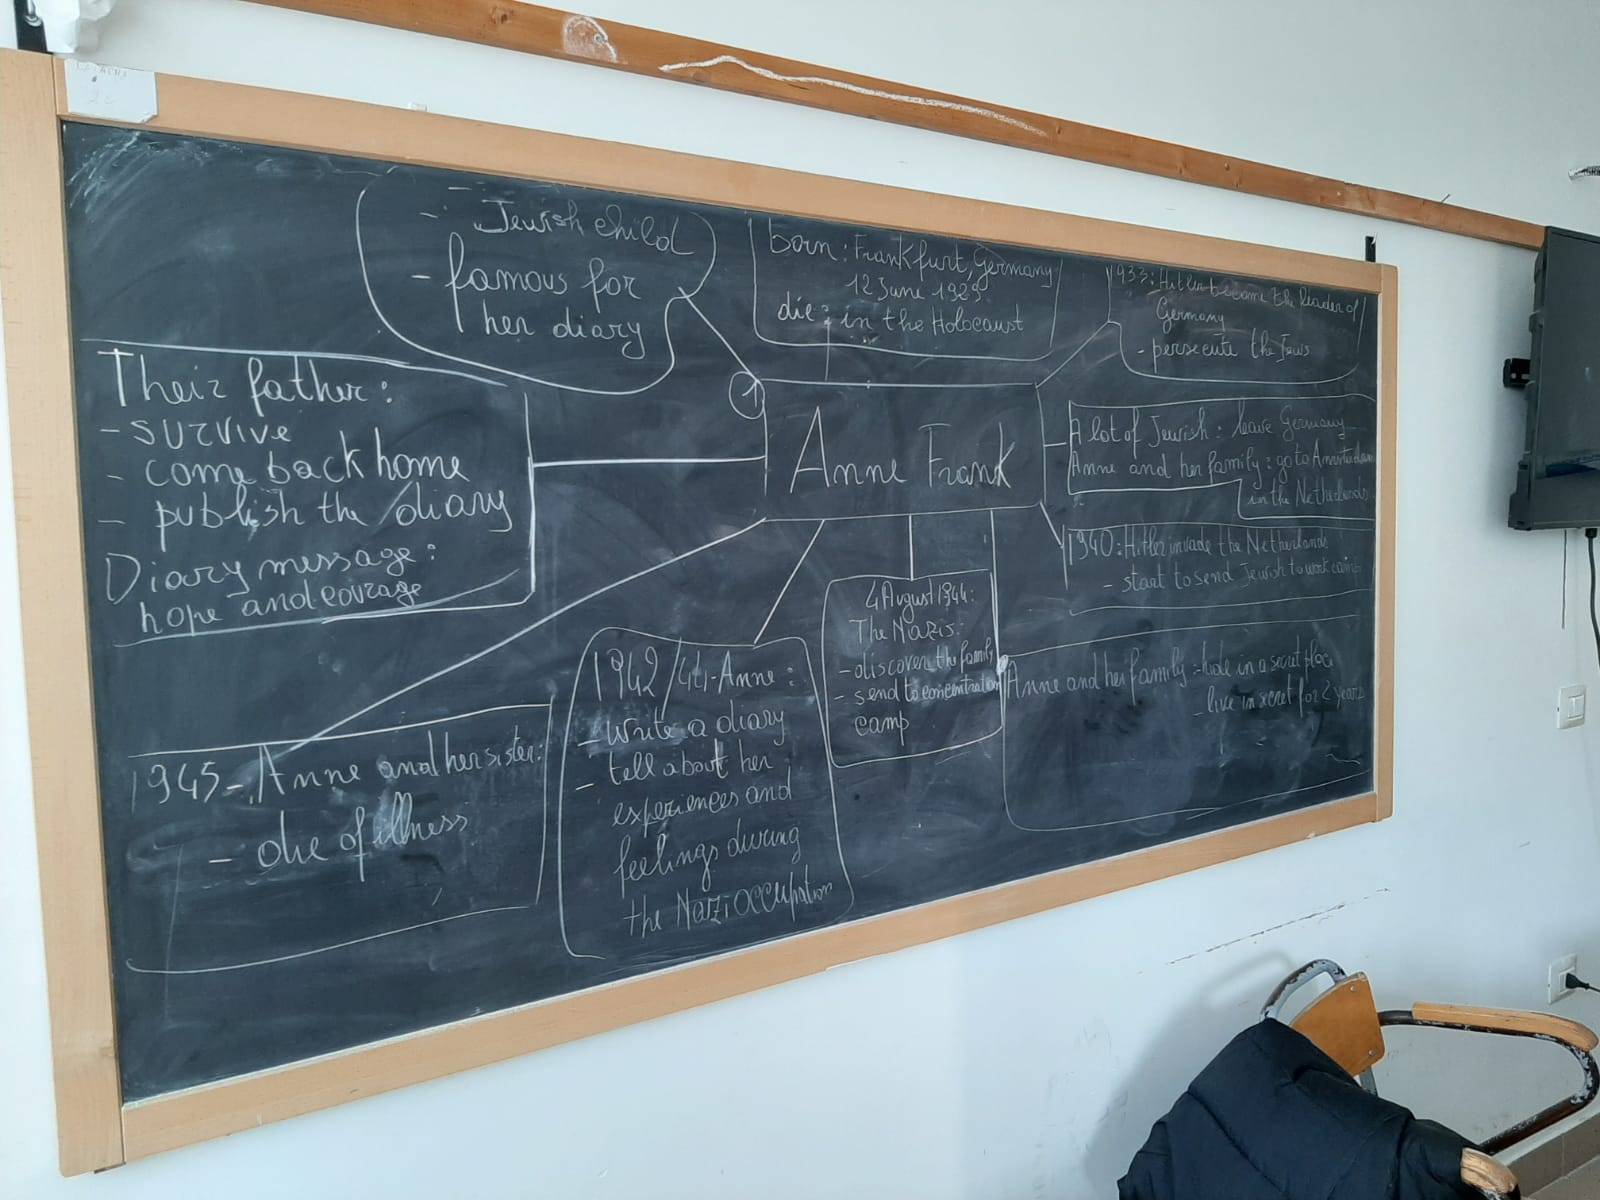 - Jewish child
- famous for
her diary
born: Frankfurt, Germany
12 June 1929
die: in the Holocaust
1933: Hitler become the leader of
Germany
- persecute the Jews
Their father:
- survive
- come back home
- publish the diary
Diary message:
hope and courage
1
Anne Frank
A lot of Jewish: leave Germany
Anne and her family: go to Amsterdam
in the Netherlands
1940: Hitler invade the Netherlands
- start to send Jewish to work camps
Anne and her family - hide in a secret place
- live in secret for 2 years
4 August 1944:
The Nazis:
- discover the family
- send to concentration
camp
1942/44 - Anne:
- write a diary
- tell about her
experiences and
feelings during
the Nazi occupation
1945 - Anne and her sister:
- die of illness